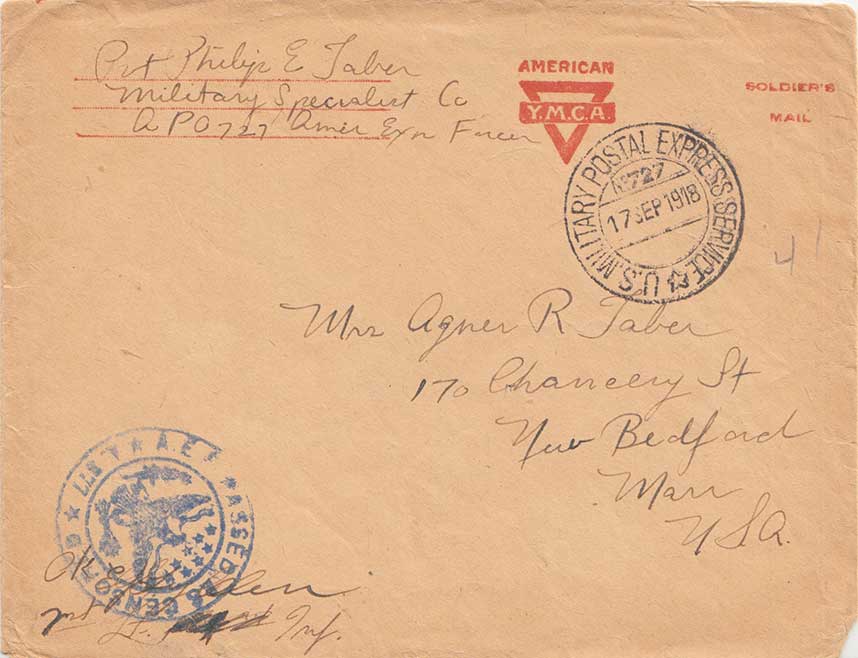 Pvt Philip E Taber
Military Specialist Co
APO 727 Amer Exp Forces
AMERICAN
Y.M.C.A.
SOLDIER'S
MAIL
U.S. MILITARY POSTAL EXPRESS SERVICE
No 727
17 SEP 1918
4
Mrs Agnes R Taber
170 Chancery St
New Bedford
Mass
USA.
A.E.F. PASSED AS CENSORED
OK
Inf.